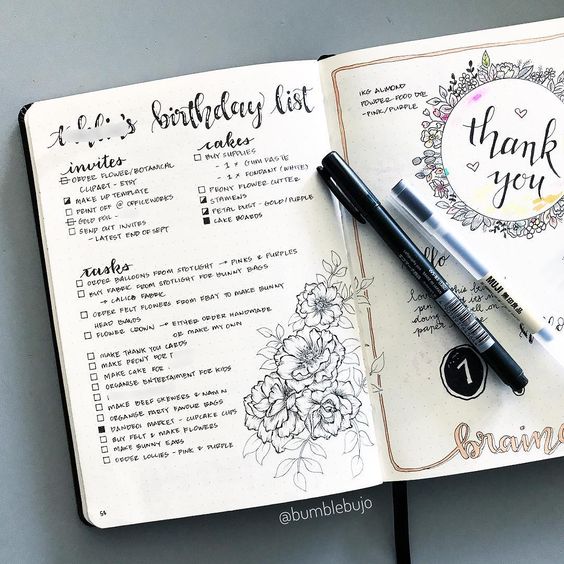 birthday list
invites
ORDER FLOWER/BOTANICAL
CLIPART - ETSY
MAKE UP TEMPLATE
PRINT OFF @ OFFICEWORKS
GOLD FOIL -
SEND OUT INVITES
- LATEST END OF SEPT
cakes
BUY SUPPLIES
- 1 x GUM PASTE
- 1 x FONDANT (WHITE)
PEONY FLOWER CUTTER
STAMENS
PETAL DUST - GOLD/PURPLE
CAKE BOARDS
tasks
ORDER BALLOONS FROM SPOTLIGHT → PINKS & PURPLES
BUY FABRIC FROM SPOTLIGHT FOR BUNNY BAGS
→ CALICO FABRIC
ORDER FELT FLOWERS FROM EBAY TO MAKE BUNNY
HEAD BANDS
FLOWER CROWN → EITHER ORDER HANDMADE
OR MAKE MY OWN
MAKE THANK YOU CARDS
MAKE PEONY FOR
MAKE CAKE FOR
ORGANISE ENTERTAIMENT FOR KIDS
MAKE BEEF SKEWERS &
ORGANISE PARTY FAVOUR BAGS
MARKET - CUPCAKE CUPS
BUY FELT & MAKE FLOWERS
MAKE BUNNY EARS
ORDER LOLLIES - PINK & PURPLE
54
1KG ALMOND
POWDER FOOD DYE
- PINK/PURPLE
thank
you
hello
MUJI 無印良品
7
brain
@bumblebujo